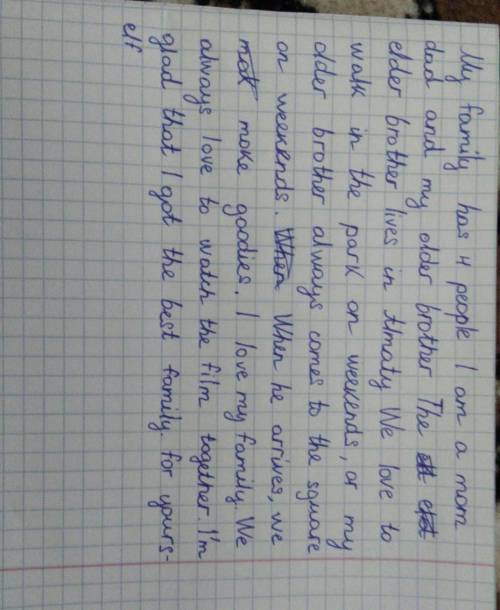 My family has 4 people I am a mom
dad and my older brother The
elder brother lives in Almaty We love to
walk in the park on weekends, or my
older brother always comes to the square
on weekends. When he arrives, we
make goodies. I love my family. We
always love to watch the film together. I'm
glad that I got the best family for yours-
elf